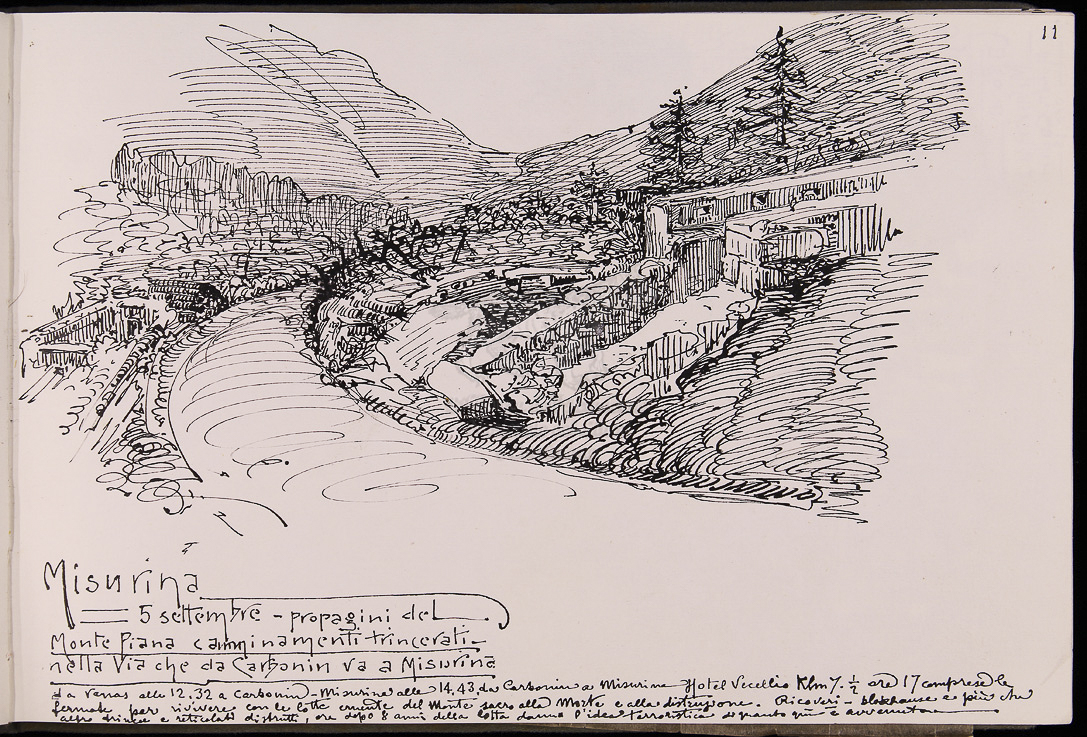 11
Misurina
5 settembre - propagini del
Monte Piana camminamenti trincerati
nella Via che da Carbonin va a Misurina
da Venas alle 12.32 a Carbonin - Misurina alle 14.43 da Carbonin a Misurina Hotel Vecellio Klm 7. ½ ore 17 comprese le
fermate per rivivere con le lotte cruente del Monte sacro alla Morte e alla distruzione. Ricoveri - blokhause e più che
altro trincee e reticolati distrutti, ore dopo 8 anni della lotta danno l'idea terroristica di quanto qui è avvenuto